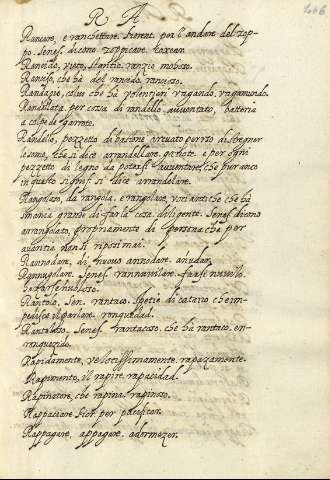 R A
Rancare, e ranchettare. fiorent. per l'andare del zop-
po. Senes. dicono zoppicare. coxear.
Rancido, vieto, stantio. ranzio mohoso.
Ranciso, che hà del rancido, rancioso.
Randagio, colui che và volentieri vagando, vagamundo.
Randellata, per cosa di randello, avventato, bateria
a colpe de garrote.
Randello, pezzetto di bastone arcuato per uso di stregner
le some, che si dice arrandellare, garrote. e per ogni
pezzetto di legno da potersi avventare, che pur anco
in questo signif. si dice arrandelare.
Rangolato, da rangola, e rangolare, voci antiche che hà
smania grande di far la cosa. diligente. Senesi dicono
arrangolato, propriamente di persona che per
avaritia non si riposi mai.
Rannodare, di nuovo annodare. añudar.
Rannugolare. Senes. rannuvilare. farsi nuvilo.
hazerse nubloso.
Rantolo, Sen. rantaco. spetie di catarro che im-
pedisce il parlare. ronquedad.
Rantoloso. Senes. rantacoso, che hà rantaco, en-
ronquezido.
Rapidamente, velocissimamente. rapazamente.
Rapimento, il rapire. rapacidad.
Rapinatore, che rapina. rapinoso.
Rappaciare. fior. per pacificar.
Rappagare, appagare, adormezer.